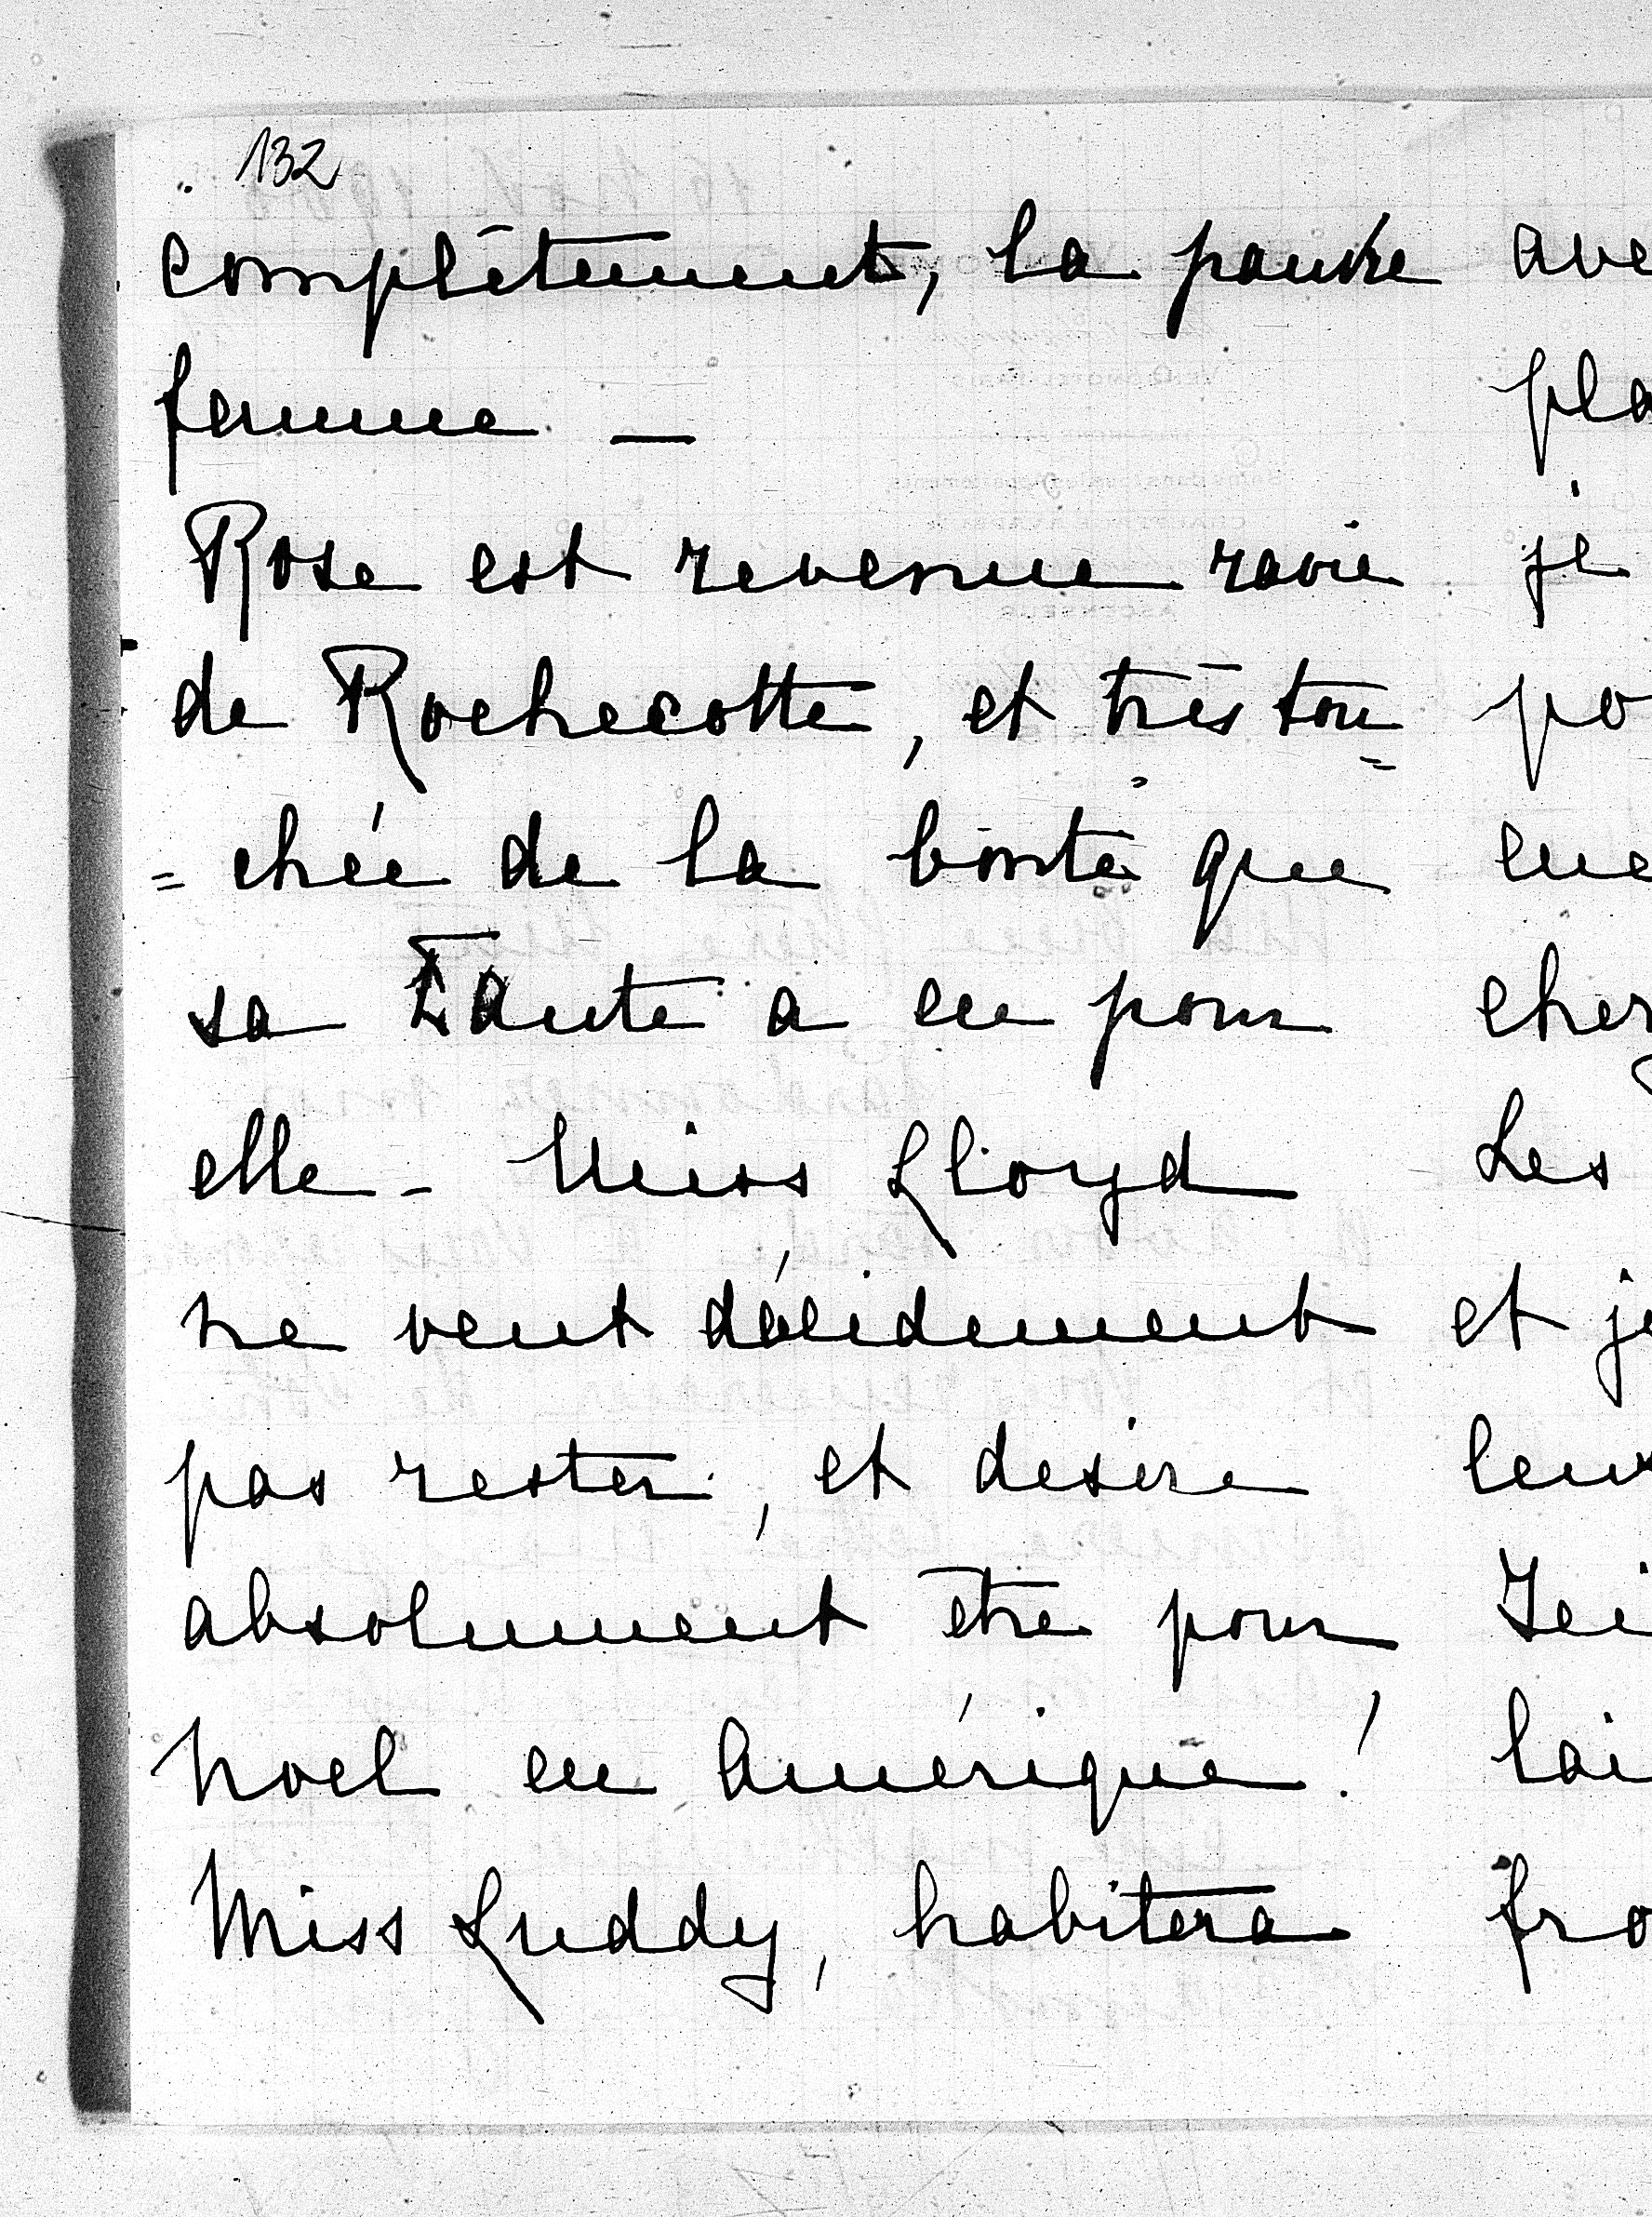 132
complètement, la pauvre
femme —
Rose est revenue ravie
de Rochecotte, et très tou=
=chée de la bonté que
sa Tante a eu pour
elle - Miss Lloyd
ne veut décidement
pas rester, et desire
absolument être pour
Noel en Amérique !
Miss Luddy, habitera
ave
pla
je
po
cher
Les
et je
leur
lai
fro